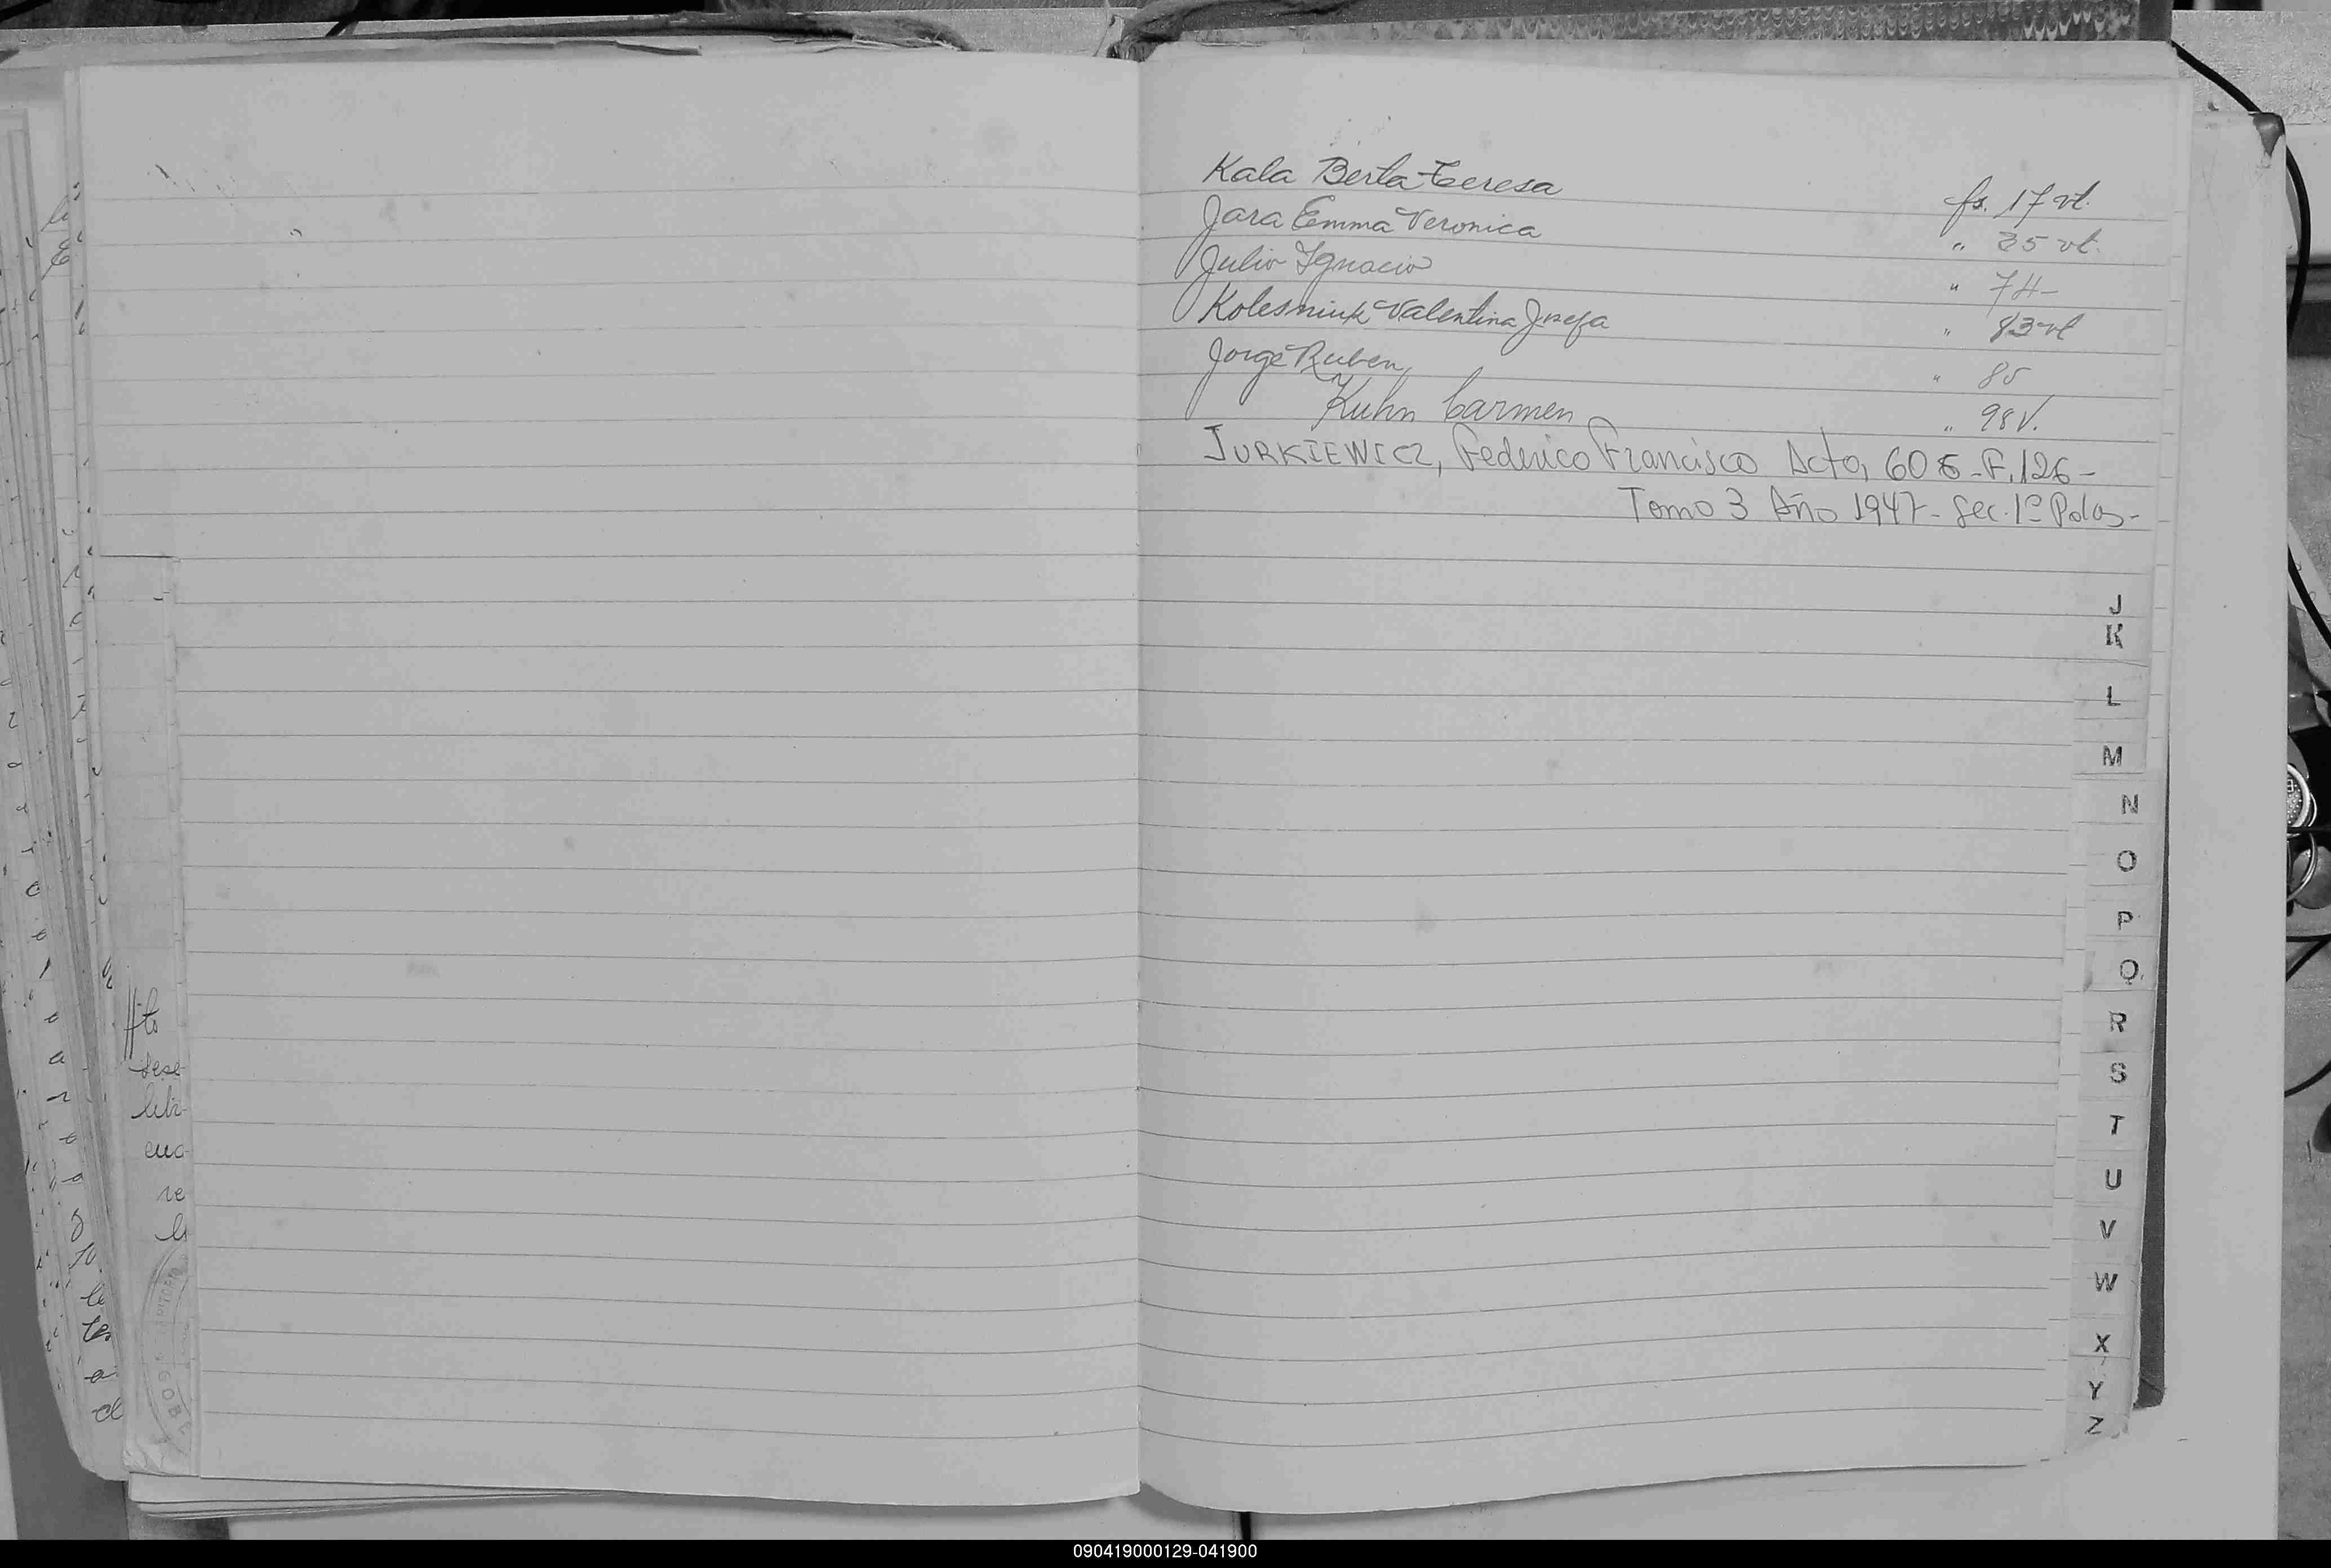 Kala Berta Teresa fs. 17 vt.
Jara Emma Veronica " 35 vt.
Julio Ignacio " 74-
Kolesniuk Valentina Josefa " 83 vt
Jorge Ruben " 85
Kuhn Carmen " 98 V.
JURKIEWICZ, Federico Francisco Acta, 605-F.126-
Tomo 3 Año 1947- Sec. 1º Pdas-
J
K
L
M
N
O
P
Q
R
S
T
U
V
W
X
Y
Z
090419000129-041900